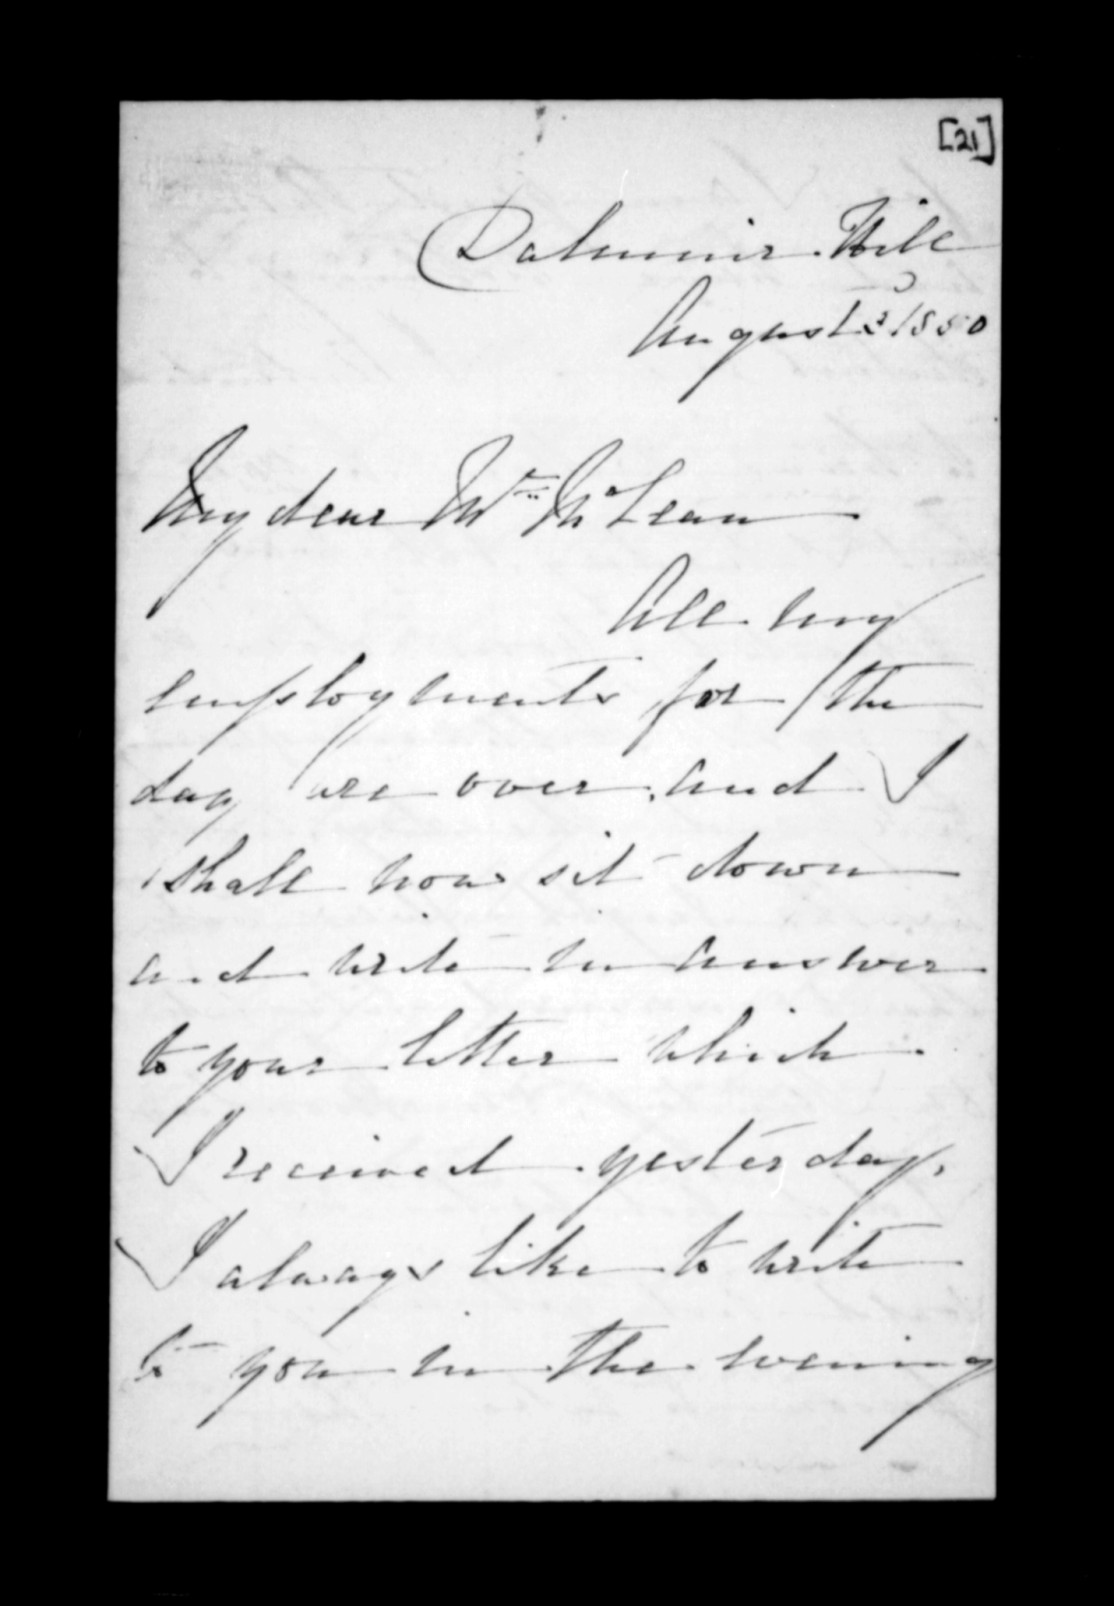 [21]
Dalmuir Hill
August 3d 1850
My dear Mr McLean
All my
employments for the
day are over and I
shall now sit down
and write in answer
to your letter which
I received yesterday,
I always like to write
to you in the evening